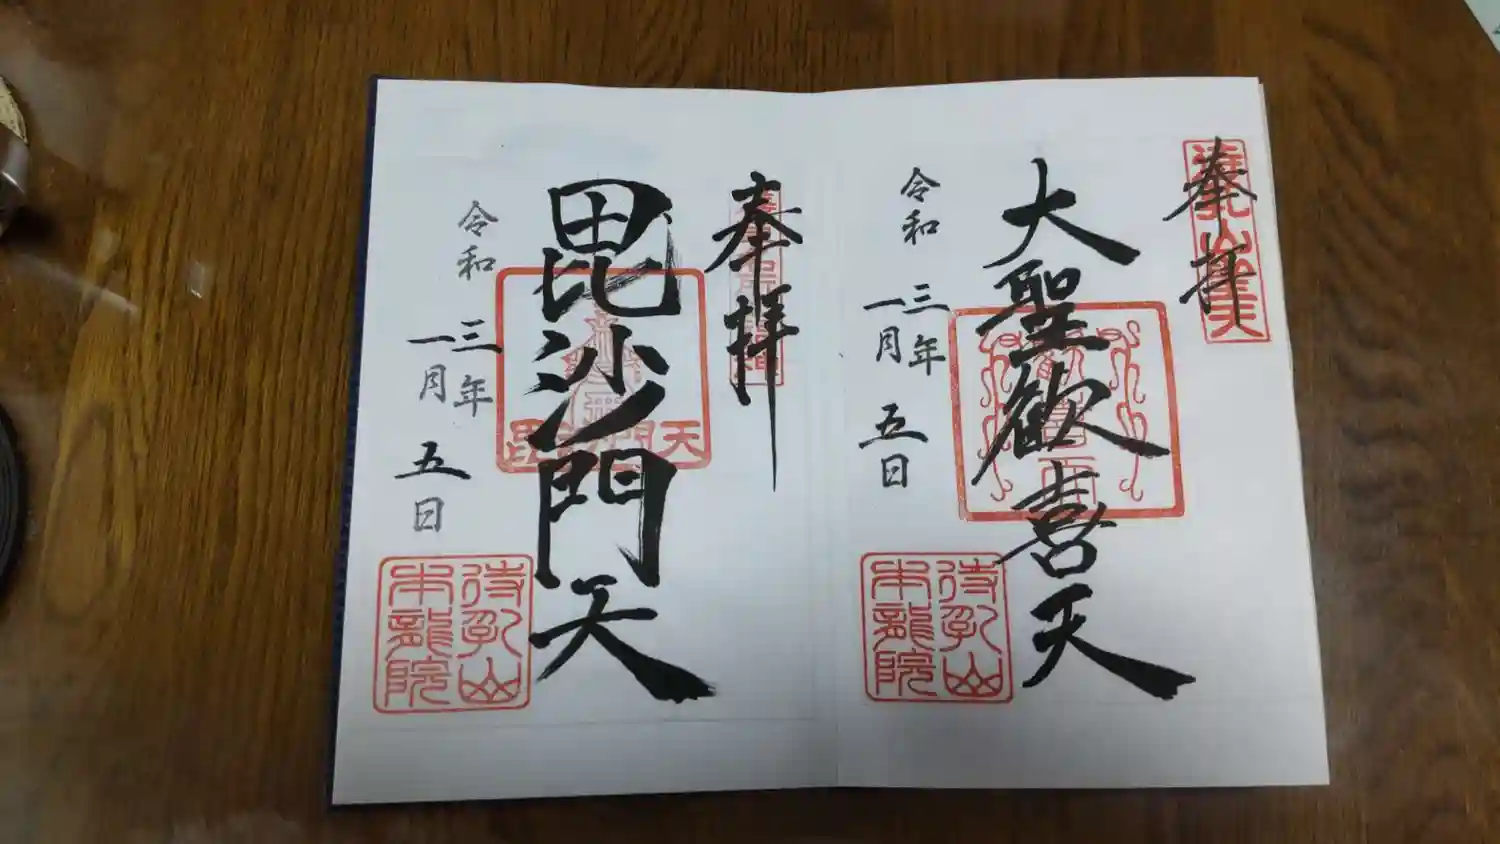 奉拝
大聖歓喜天
令和三年一月五日
待乳山
本龍院
奉拝
毘沙門天
令和三年一月五日
毘沙門天
待乳山
本龍院